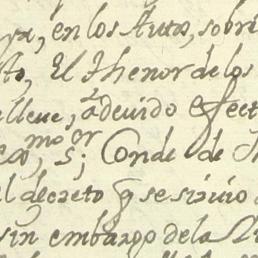 ya, en los Autos, sobre
to, El Thenor de los
lleve, a devido efect
mo or
ca, S; Conde de
el decreto q se sirvio
sin embargo de la